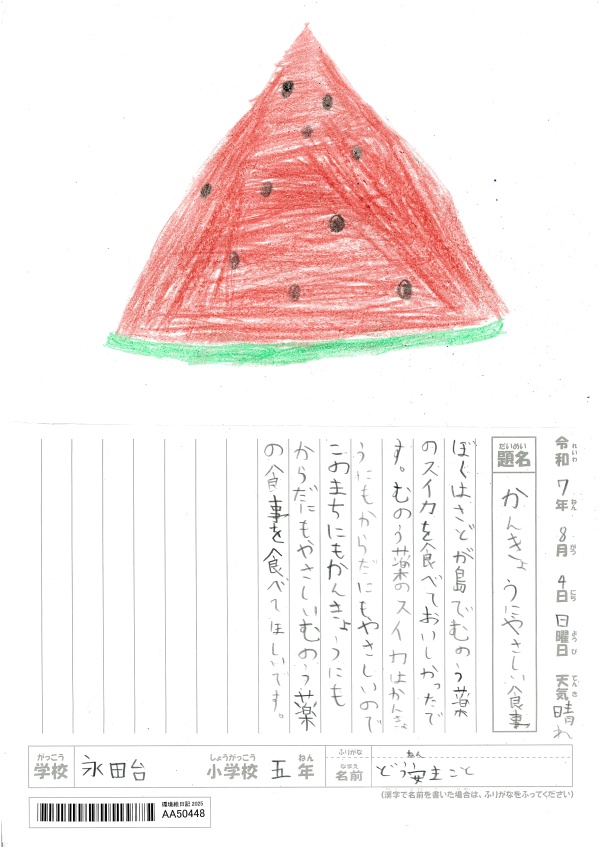 令和7年8月4日日曜日 天気晴れ
れいわ ねん がつ にち ようび てんき
だいめい
題名 かんきょうにやさしい食事
ぼくはさどが島でむのう薬
のスイカを食べておいしかったで
す。むのう薬のスイカはかんきょ
うにもからだにもやさしいので
このまちにもかんきょうにも
からだにもやさしいむのう薬
の食事を食べてほしいです。
がっこう しょうがっこう ねん
学校 永田台 小学校 五年
ふりがな ねん
なまえ
名前 どう安まこと
(漢字で名前を書いた場合は、ふりがなをふってください)
環境絵日記 2025
AA50448